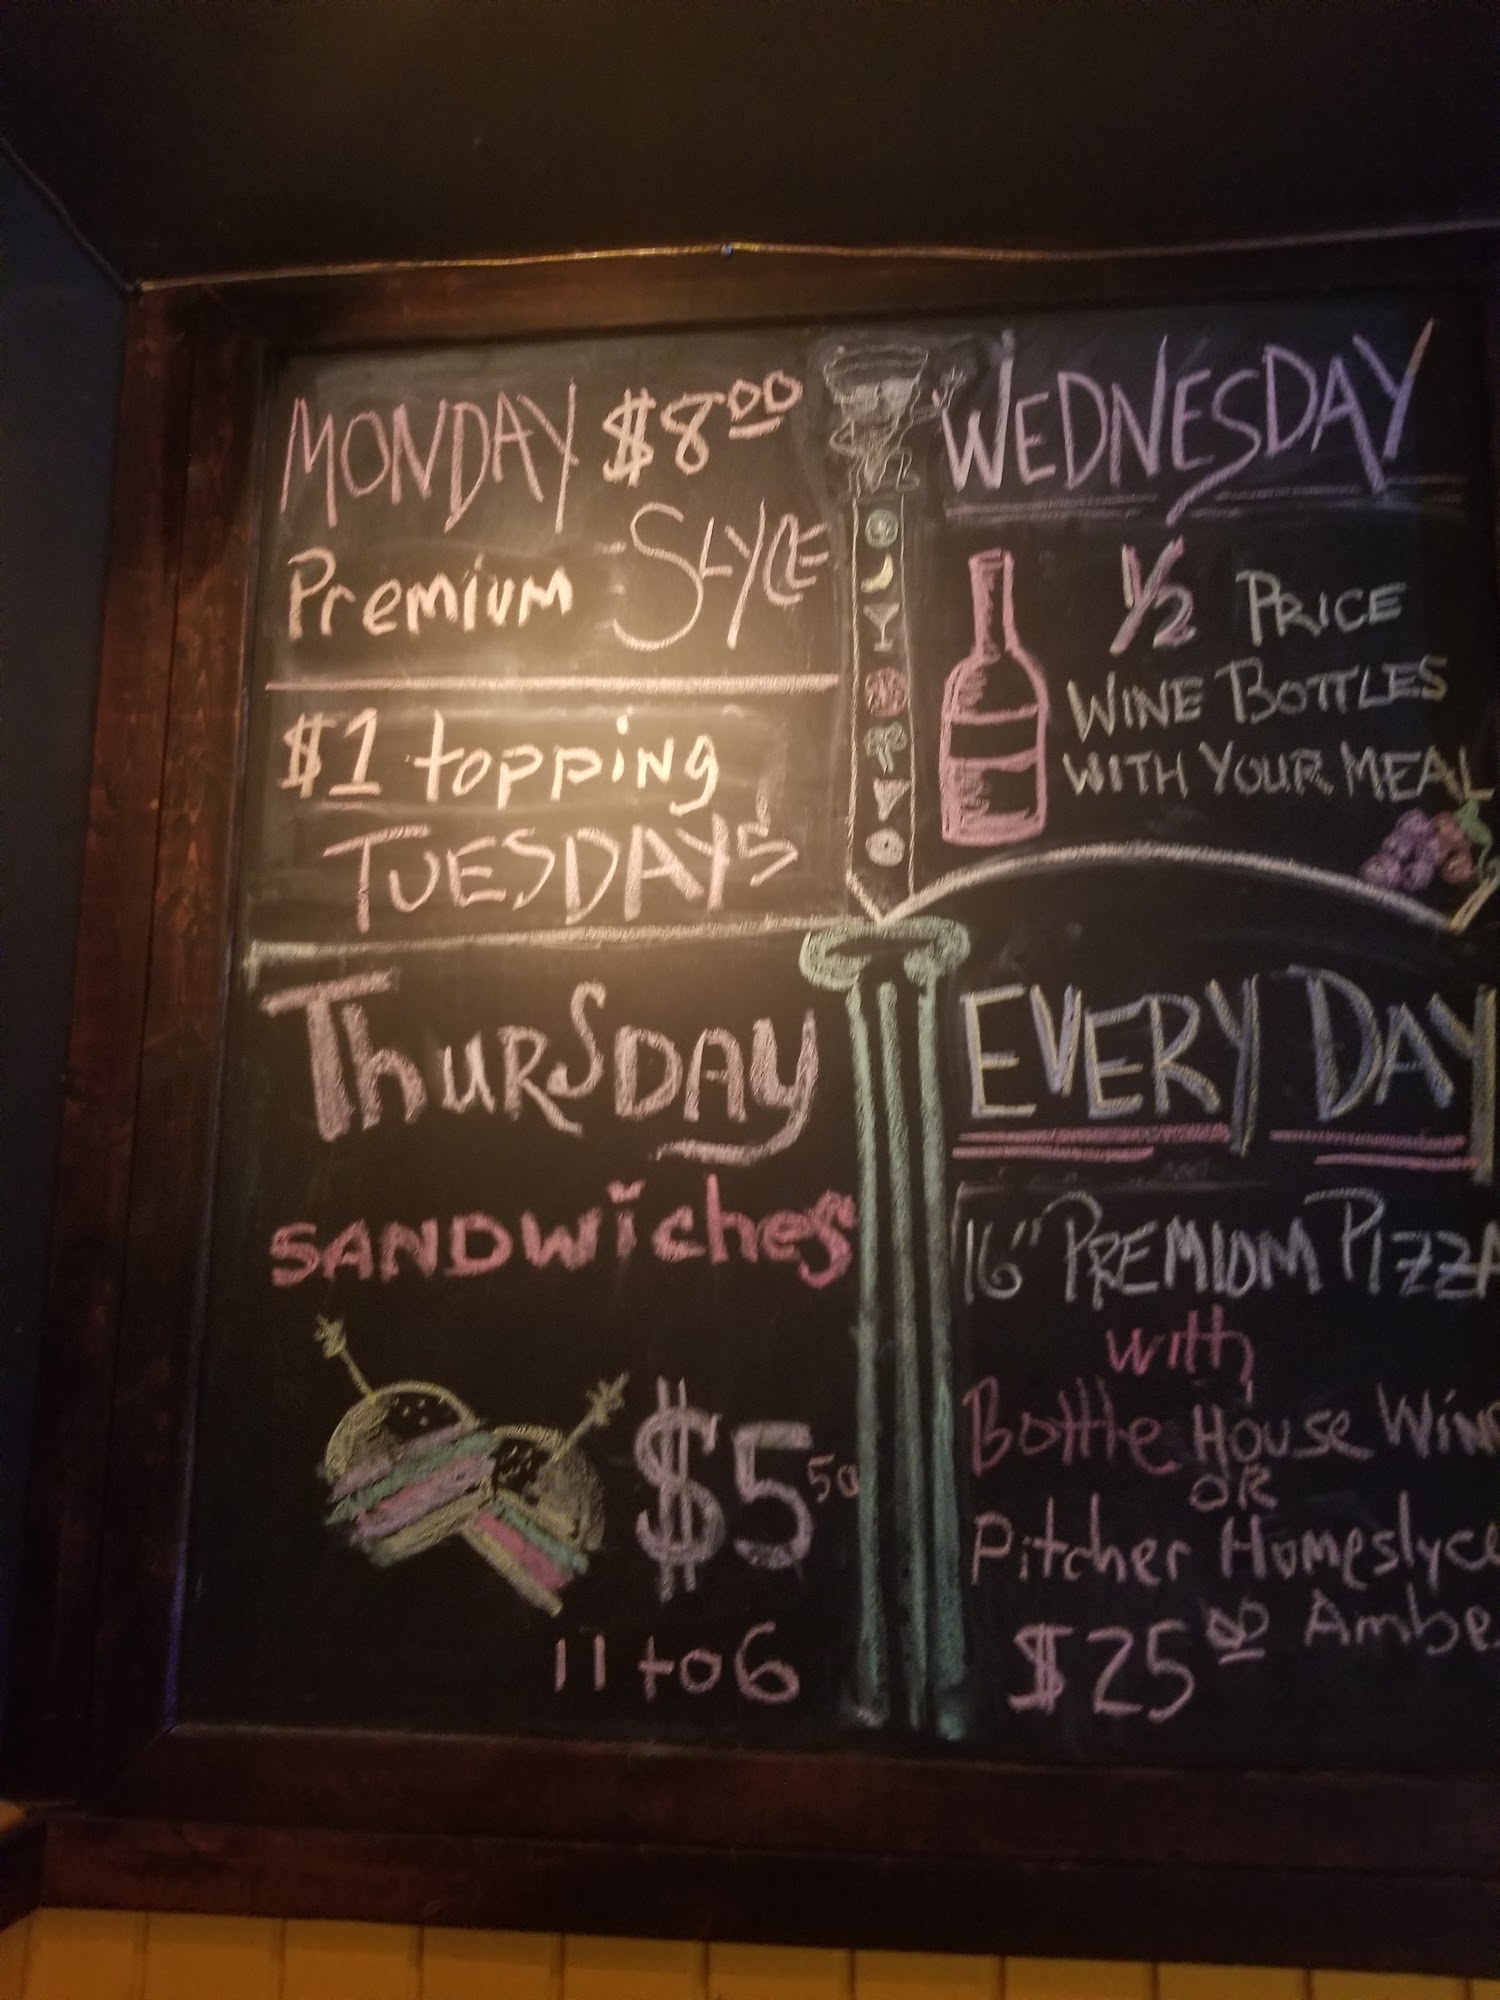 MONDAY $8.00
Premium SLYCE
$1 topping
TUESDAY'S
WEDNESDAY
1/2 PRICE
WINE BOTTLES
WITH YOUR MEAL
THURSDAY
SANDWiches
$5.50
11 to 6
EVERY DAY
16" PREMIUM PIZZA
with
Bottle HOUSE WIN
OR
Pitcher Homeslyce
$25.00 Ambe